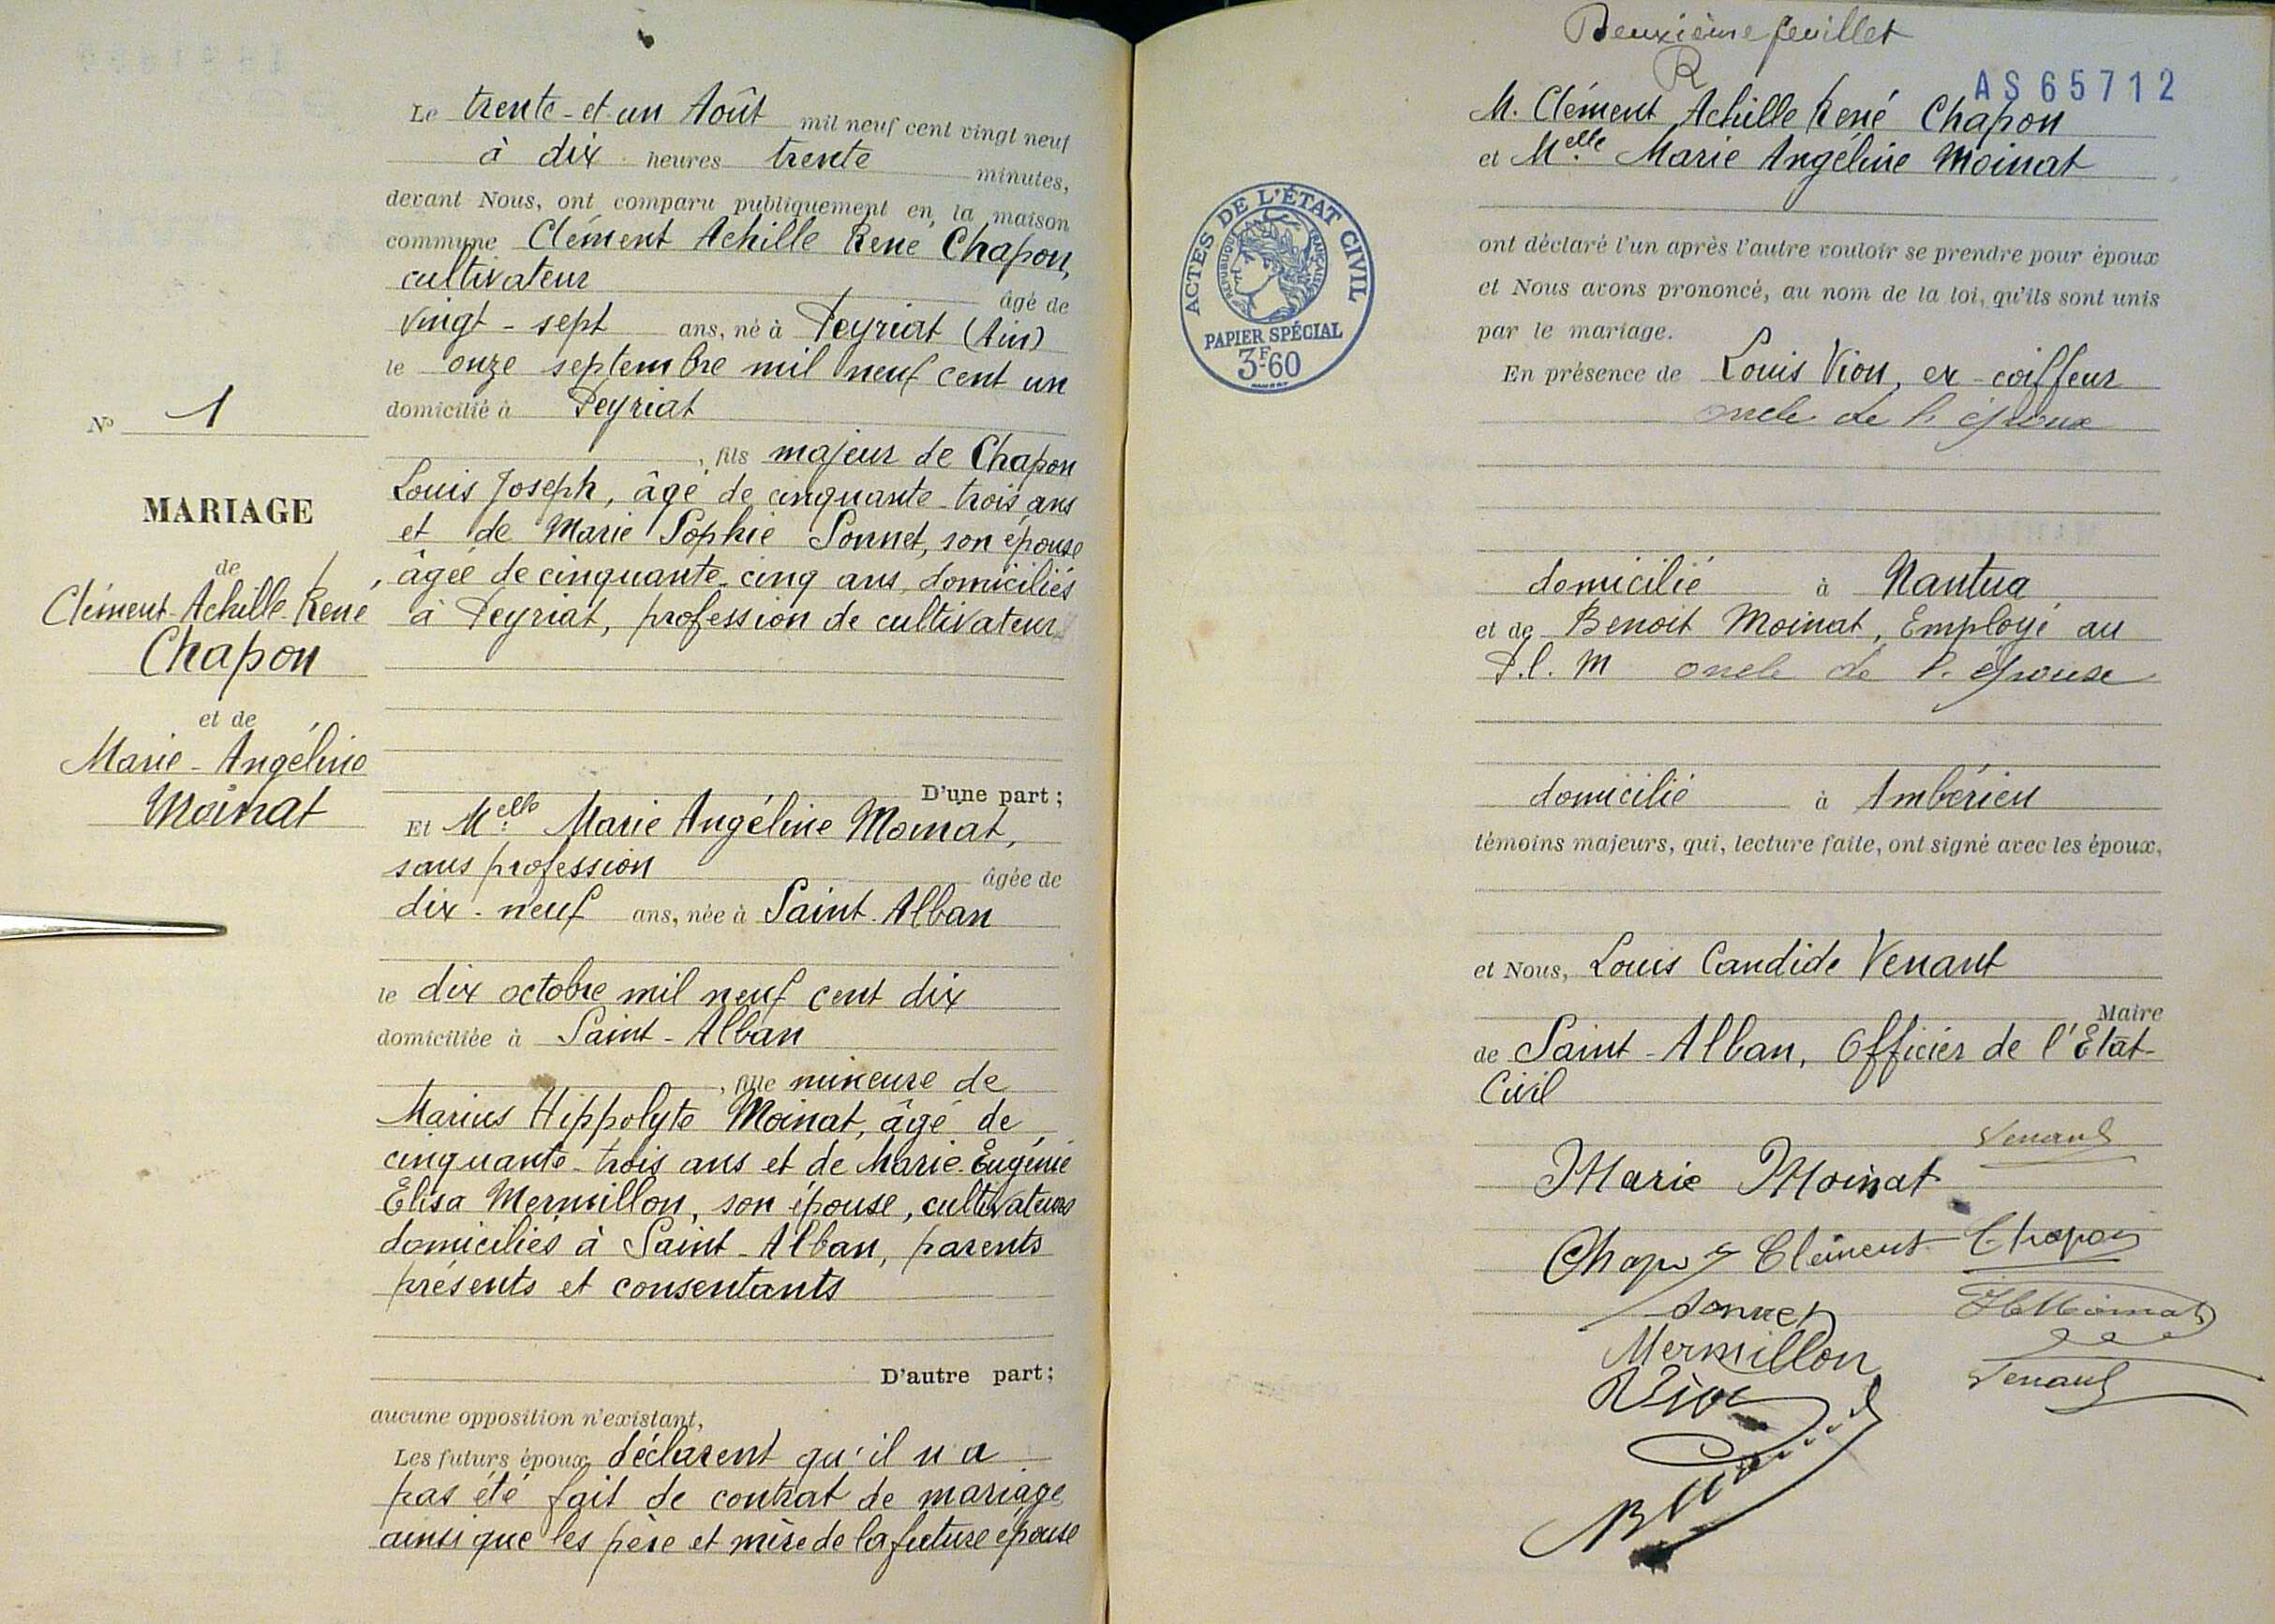 Le trente-et-un Août mil neuf cent vingt neuf
à dix heures trente minutes,
devant Nous, ont comparu publiquement en la maison
commune Clément Achille René Chapon,
cultivateur âgé de
vingt-sept ans, né à Peyriat (Ain)
le onze septembre mil neuf cent un
domicilié à Peyriat
, fils majeur de Chapon
Louis Joseph, âgé de cinquante-trois ans
et de Marie Sophie Sonnet, son épouse
, âgée de cinquante-cinq ans, domiciliés
à Peyriat, profession de cultivateur
D'une part ;
Et Melle Marie Angéline Moinat,
sans profession âgée de
dix-neuf ans, née à Saint-Alban
le dix octobre mil neuf cent dix
domiciliée à Saint-Alban
, fille mineure de
Marius Hippolyte Moinat, âgé de
cinquante-trois ans et de Marie-Eugénie
Elisa Mermillon, son épouse, cultivateurs
domiciliés à Saint-Alban, parents
présents et consentants
D'autre part ;
aucune opposition n'existant,
Les futurs époux déclarent qu'il n'a
pas été fait de contrat de mariage
ainsi que les père et mère de la future épouse
No 1
MARIAGE
de
Clément-Achille-René
Chapon
et de
Marie-Angéline
Moinat
Deuxième feuillet
R
AS65712
M. Clément Achille René Chapon
et Melle Marie Angéline Moinat
ont déclaré l'un après l'autre vouloir se prendre pour époux
et Nous avons prononcé, au nom de la loi, qu'ils sont unis
par le mariage.
En présence de Louis Vion, ex-coiffeur
oncle de l'époux
domicilié à Nantua
et de Benoit Moinat, Employé au
P.l.M oncle de l'épouse
domicilié à Ambérieu
témoins majeurs, qui, lecture faite, ont signé avec les époux,
et Nous, Louis Candide Venant
Maire
de Saint-Alban, Officier de l'Etat-
Civil
Venant
Marie Moinat
Chapon Clément Chapon
Sonnet
H Moinat
Mermillon
Vion
Venant
ACTES DE L'ÉTAT CIVIL
RÉPUBLIQUE FRANÇAISE
PAPIER SPÉCIAL
3F60